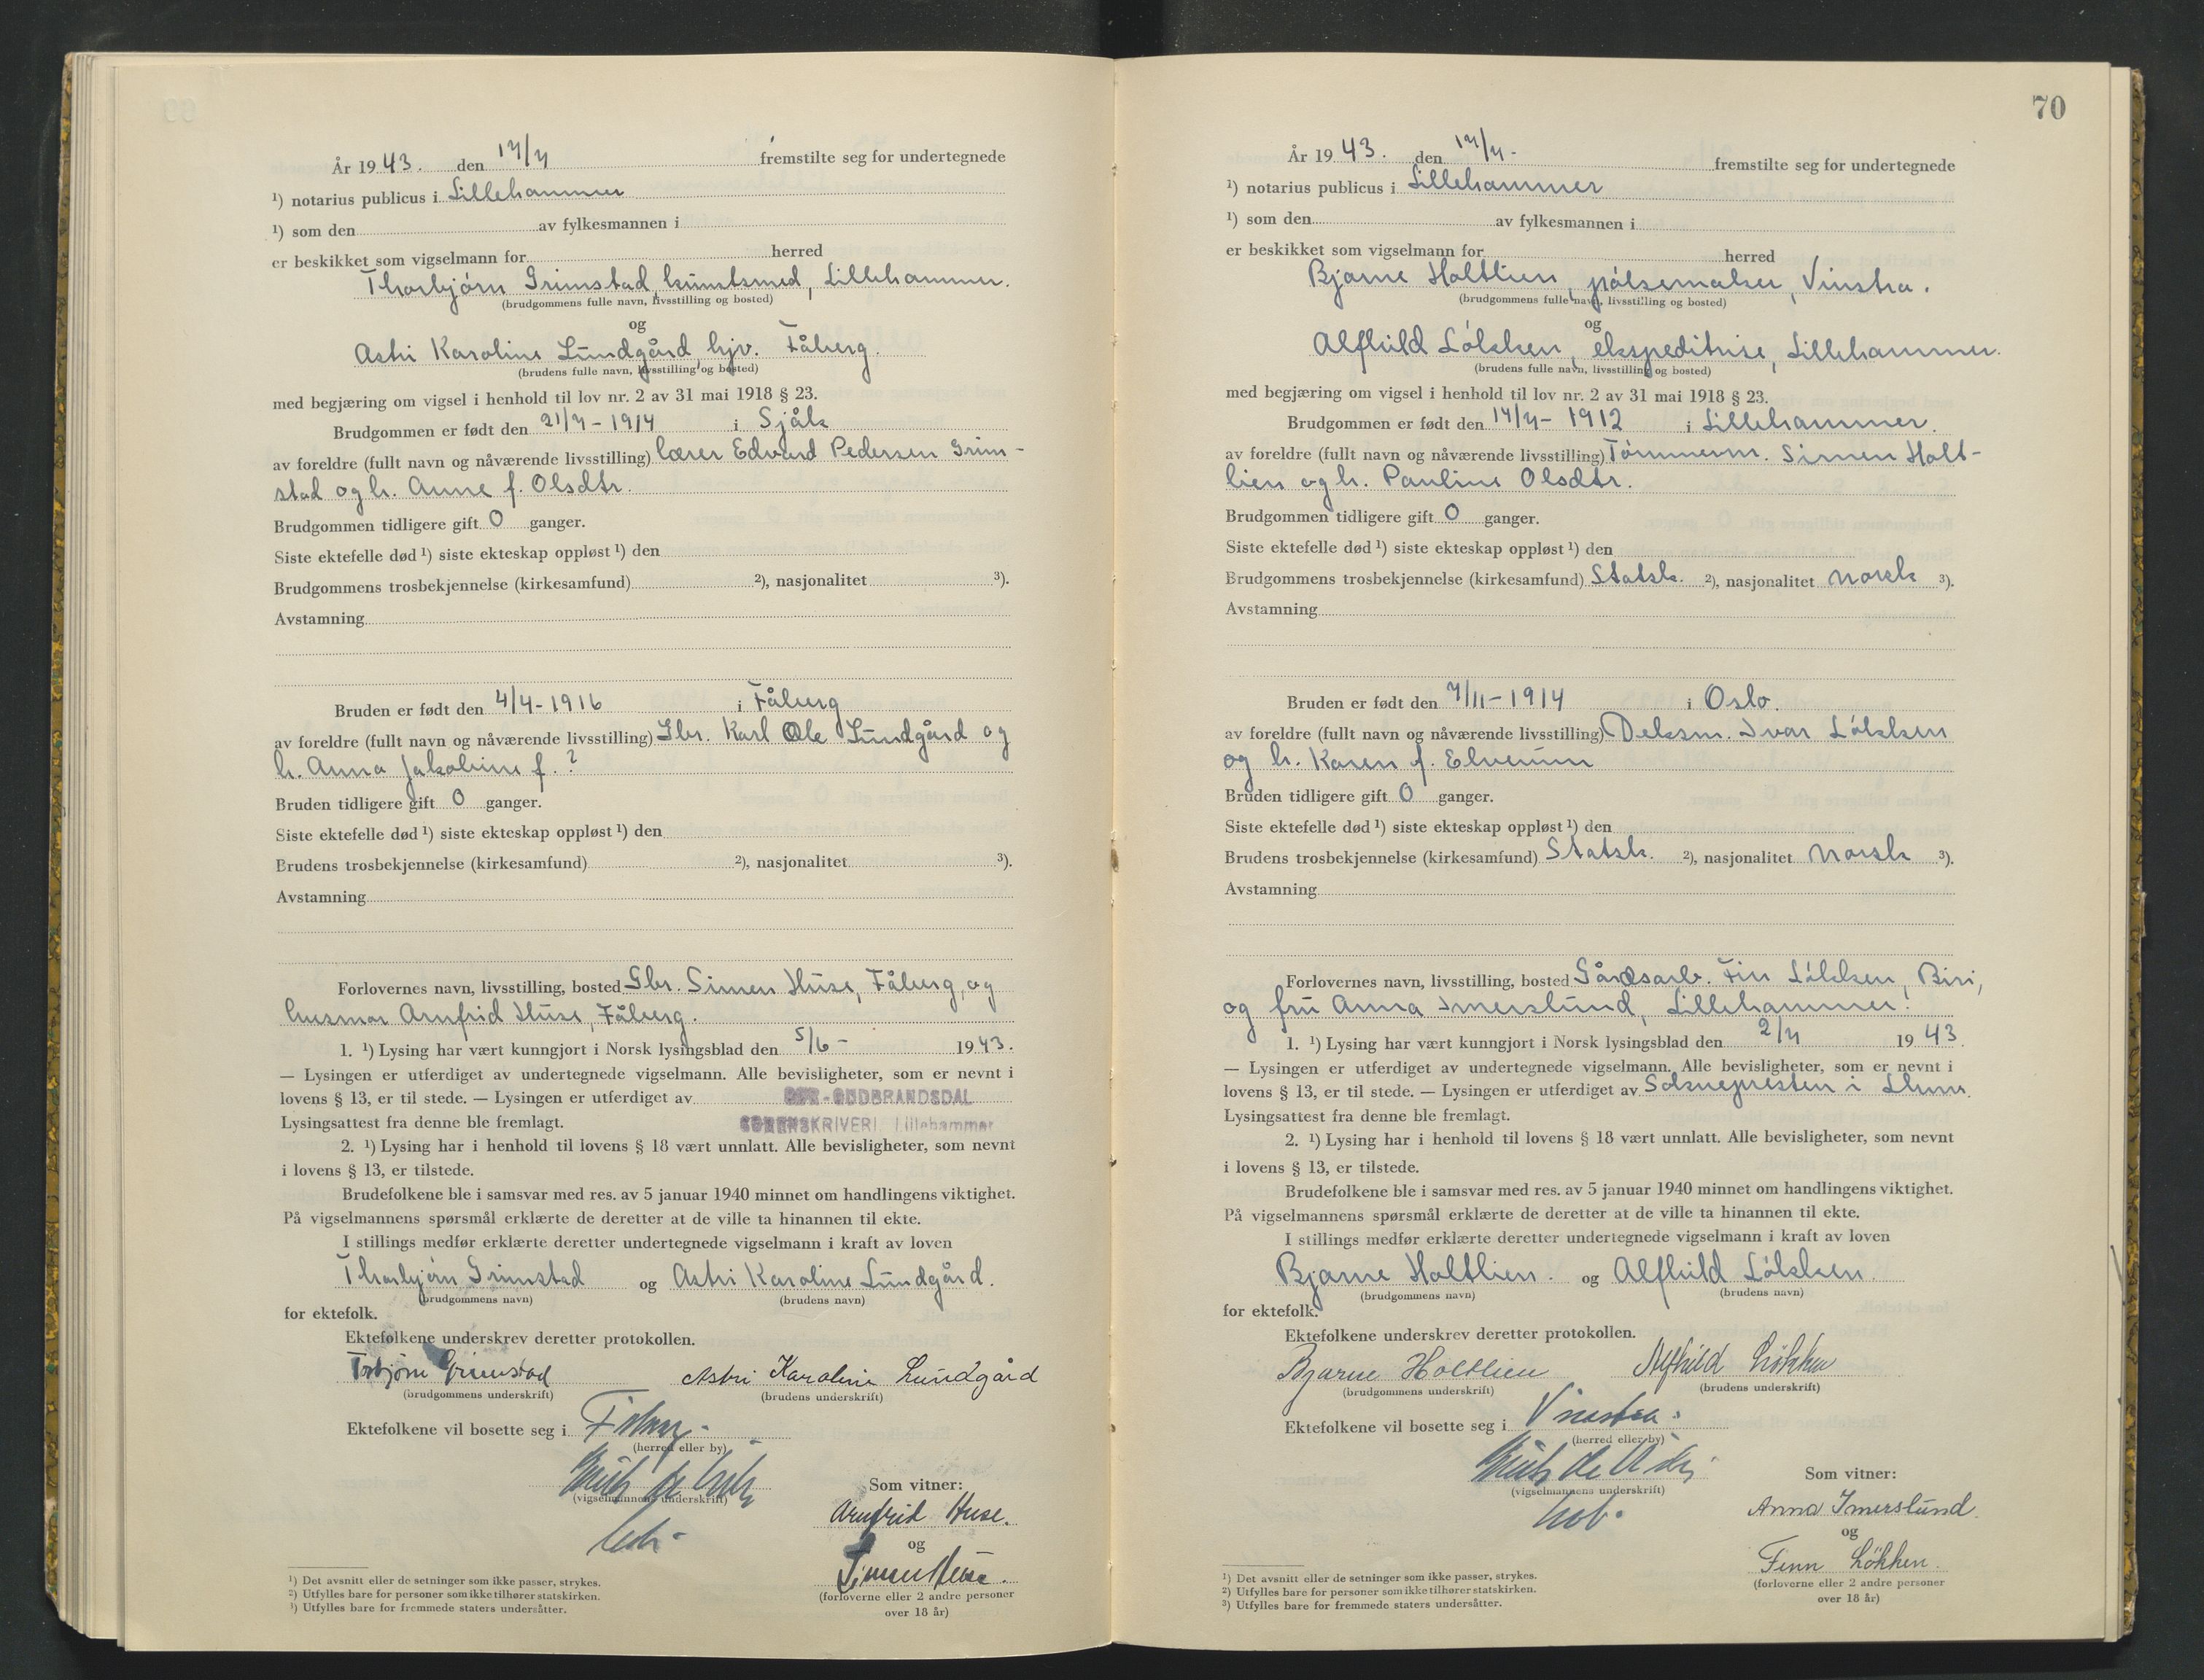 År 1943. den 17/7 fremstilte seg for undertegnede
¹) notarius publicus i Lillehammer
¹) som den av fylkesmannen i
er beskikket som vigselmann for herred
Thorbjörn Grimstad, kunstsmed, Lillehammer.
(brudgommens fulle navn, livsstilling og bosted)
og
Astri Karoline Lundgård, hjv. Fåberg.
(brudens fulle navn, livsstilling og bosted)
med begjæring om vigsel i henhold til lov nr. 2 av 31 mai 1918 § 23.
Brudgommen er født den 21/7 - 1914 i Sjåk
av foreldre (fullt navn og nåværende livsstilling) lærer Edvard Pedersen Grim-
stad og h. Anne f. Olsdtr.
Brudgommen tidligere gift 0 ganger.
Siste ektefelle død ¹) siste ekteskap oppløst ¹) den
Brudgommens trosbekjennelse (kirkesamfund) ²), nasjonalitet ³).
Avstamning
Bruden er født den 4/4 - 1916 i Fåberg
av foreldre (fullt navn og nåværende livsstilling) Gbr. Karl Ole Lundgård og
h. Anna Jakobine f. ?
Bruden tidligere gift 0 ganger.
Siste ektefelle død ¹) siste ekteskap oppløst ¹) den
Brudens trosbekjennelse (kirkesamfund) ²), nasjonalitet ³).
Avstamning
Forlovernes navn, livsstilling, bosted Gbr. Simen Huse, Fåberg, og
husmor Arnfrid Huse, Fåberg.
1. ¹) Lysing har vært kunngjort i Norsk lysingsblad den 5/6 - 1943.
— Lysingen er utferdiget av undertegnede vigselmann. Alle bevisligheter, som er nevnt i
lovens § 13, er til stede. — Lysingen er utferdiget av SØR-GUDBRANDSDAL
Lysingsattest fra denne ble fremlagt. SORENSKRIVERI Lillehammer
2. ¹) Lysing har i henhold til lovens § 18 vært unnlatt. Alle bevisligheter, som nevnt
i lovens § 13, er tilstede.
Brudefolkene ble i samsvar med res. av 5 januar 1940 minnet om handlingens viktighet.
På vigselmannens spørsmål erklærte de deretter at de ville ta hinannen til ekte.
I stillings medfør erklærte deretter undertegnede vigselmann i kraft av loven
Thorbjörn Grimstad og Astri Karoline Lundgård.
(brudgommens navn) (brudens navn)
for ektefolk.
Ektefolkene underskrev deretter protokollen.
Torbjörn Grimstad Astri Karoline Lundgård
(brudgommens underskrift) (brudens underskrift)
Ektefolkene vil bosette seg i Fåberg.
(herred eller by)
(vigselmannens underskrift)
Som vitner:
Arnfrid Huse.
og
Simen Huse.
(forloverne eller 2 andre personer
over 18 år)
¹) Det avsnitt eller de setninger som ikke passer, strykes.
²) Utfylles bare for personer som ikke tilhører statskirken.
³) Utfylles bare for fremmede staters undersåtter.
70
År 1943. den 17/7 - fremstilte seg for undertegnede
¹) notarius publicus i Lillehammer
¹) som den av fylkesmannen i
er beskikket som vigselmann for herred
Bjarne Holtlien, pölsemaker, Vinstra.
(brudgommens fulle navn, livsstilling og bosted)
og
Alfhild Lökken, ekspeditrise, Lillehammer.
(brudens fulle navn, livsstilling og bosted)
med begjæring om vigsel i henhold til lov nr. 2 av 31 mai 1918 § 23.
Brudgommen er født den 17/7 - 1912 i Lillehammer.
av foreldre (fullt navn og nåværende livsstilling) Tömmerm. Simen Holt-
lien og h. Pauline Olsdtr.
Brudgommen tidligere gift 0 ganger.
Siste ektefelle død ¹) siste ekteskap oppløst ¹) den
Brudgommens trosbekjennelse (kirkesamfund) Statsk. ²), nasjonalitet norsk ³).
Avstamning
Bruden er født den 7/11 - 1914 i Oslo.
av foreldre (fullt navn og nåværende livsstilling) Deksm. Ivar Lökken
og h. Karen f. Elverum
Bruden tidligere gift 0 ganger.
Siste ektefelle død ¹) siste ekteskap oppløst ¹) den
Brudens trosbekjennelse (kirkesamfund) Statsk. ²), nasjonalitet norsk ³).
Avstamning
Forlovernes navn, livsstilling, bosted Gårdsarb. Fin Lökken, Biri,
og fru Anna Imerslund, Lillehammer.
1. ¹) Lysing har vært kunngjort i Norsk lysingsblad den 2/7 1943.
— Lysingen er utferdiget av undertegnede vigselmann. Alle bevisligheter, som er nevnt i
lovens § 13, er til stede. — Lysingen er utferdiget av Soknepresten i
Lysingsattest fra denne ble fremlagt.
2. ¹) Lysing har i henhold til lovens § 18 vært unnlatt. Alle bevisligheter, som nevnt
i lovens § 13, er tilstede.
Brudefolkene ble i samsvar med res. av 5 januar 1940 minnet om handlingens viktighet.
På vigselmannens spørsmål erklærte de deretter at de ville ta hinannen til ekte.
I stillings medfør erklærte deretter undertegnede vigselmann i kraft av loven
Bjarne Holtlien. og Alfhild Lökken.
(brudgommens navn) (brudens navn)
for ektefolk.
Ektefolkene underskrev deretter protokollen.
Bjarne Holtlien Alfhild Løkken
(brudgommens underskrift) (brudens underskrift)
Ektefolkene vil bosette seg i Vinstra.
(herred eller by)
(vigselmannens underskrift)
Som vitner:
Anna Imerslund.
og
Finn Lökken.
(forloverne eller 2 andre personer
over 18 år)
¹) Det avsnitt eller de setninger som ikke passer, strykes.
²) Utfylles bare for personer som ikke tilhører statskirken.
³) Utfylles bare for fremmede staters undersåtter.